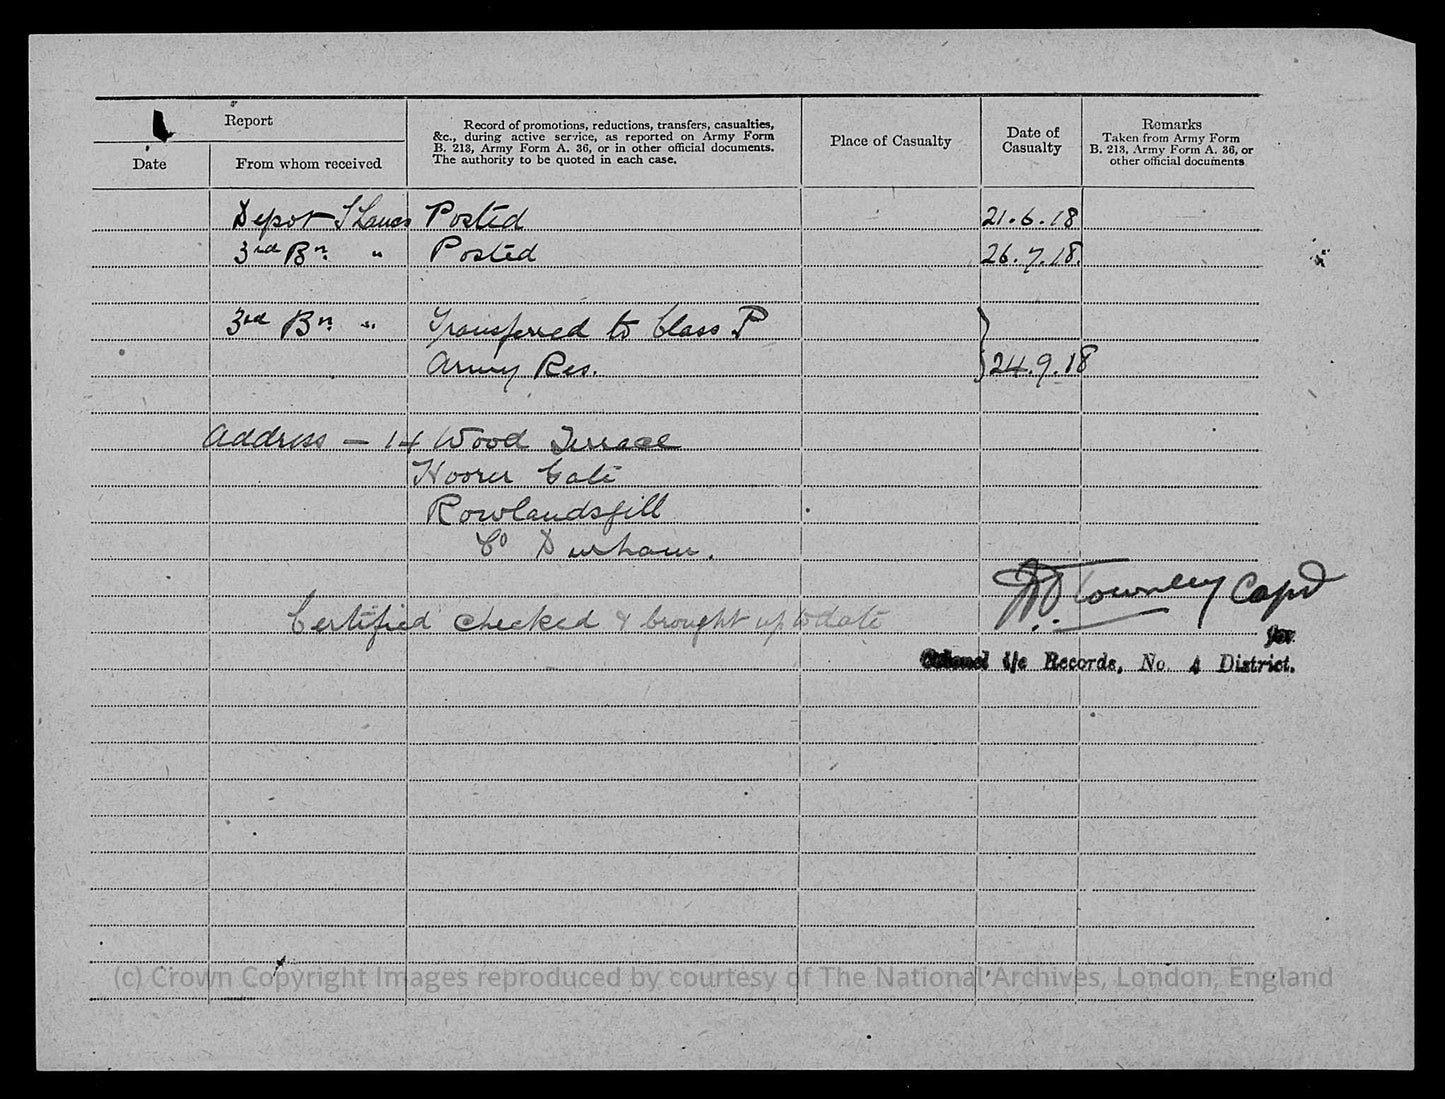 Report
Date
From whom received
Record of promotions, reductions, transfers, casualties,
&c., during active service, as reported on Army Form
B. 213, Army Form A. 36, or in other official documents.
The authority to be quoted in each case.
Place of Casualty
Date of
Casualty
Remarks
Taken from Army Form
B. 213, Army Form A. 36, or
other official documents
Depot S Lancs Posted 21.6.18
3rd Bn. " Posted 26.7.18.
3rd Bn " Transferred to Class P
Army Res. 24.9.18
Address - 14 Wood Terrace
Gate
Rowlandsgill
Co Durham.
Townley Capt
Certified checked & brought up to date
for
Colonel i/c Records, No. 4 District.
(c) Crown Copyright Images reproduced by courtesy of The National Archives, London, England